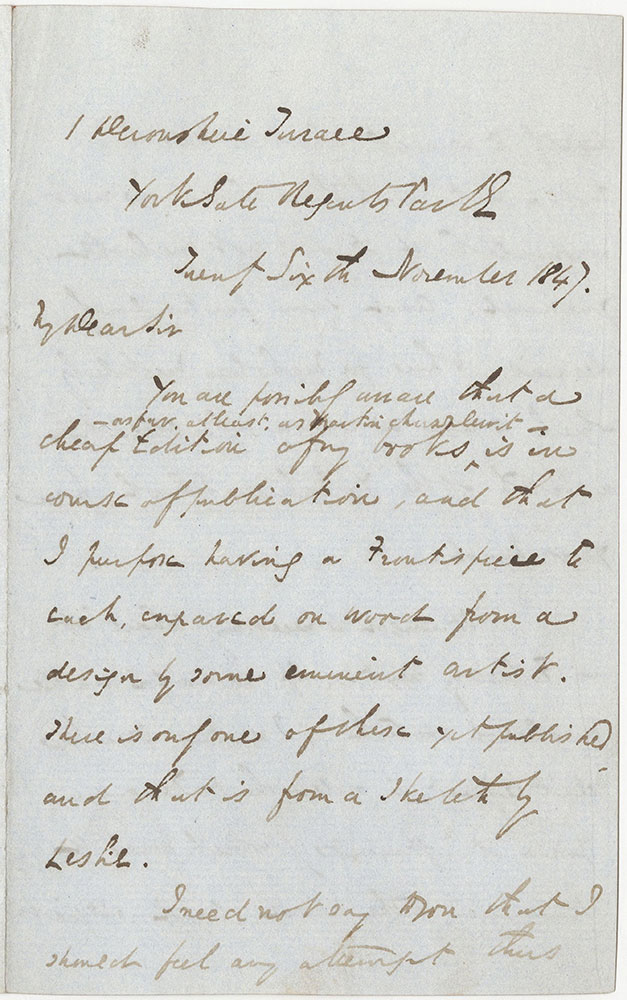 1 Devonshire Terrace
York Gate Regents Park
Twenty Sixth November 1847.
My Dear Sir
You are possibly aware that a
– as far, at least, as Martin Chuzzlewit –
cheap Edition of my books, is in
course of publication, and that
I purpose having a Frontispiece to
each, engraved on wood from a
design by some eminent artist.
There is only one of these yet published,
and that is from a Sketch by
Leslie.
I need not say to you that I
should feel any attempt thus